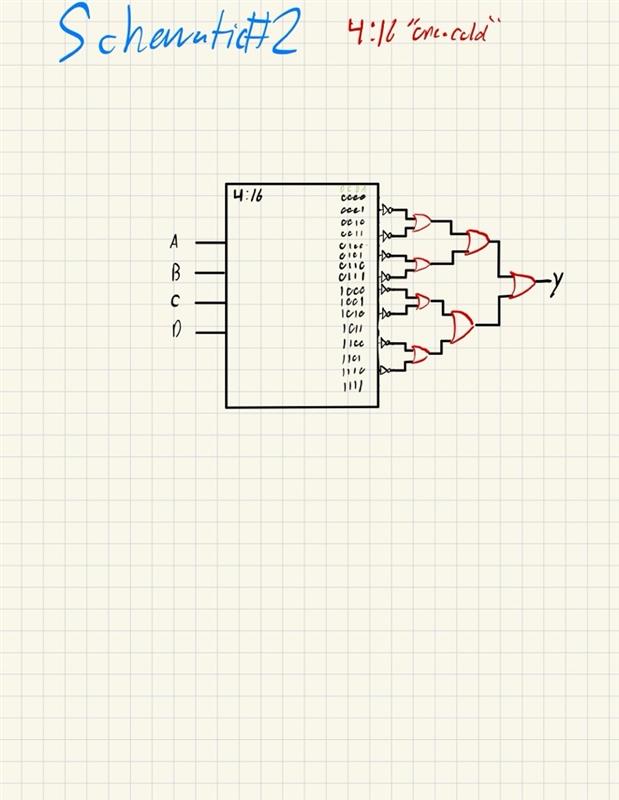 Schematic#2 4:16 "one-cold"
4:16
0000
0001
0010
0011
A
0100
0101
0110
B
0111
1000
1001
C
1010
1011
D
1100
1101
1110
1111
Y